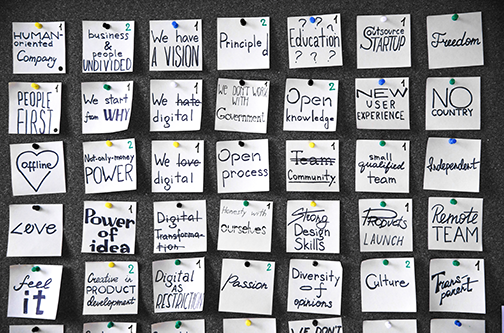 HUMAN-
oriented
Company
1
business
&
people
UNDIVIDED
2
We have
A VISION
1
Principled
2
? ? ?
Education
? ? ?
Outsource
STARTUP
1
Freedom
PEOPLE
FIRST.
1
We start
from WHY
1
We hate
digital
1
WE DON'T WORK
WITH
Government
1
Open
knowledge
2
NEW
USER
EXPERIENCE
1
NO
COUNTRY
offline
Not-only-money
POWER
2
We love
digital
Open
process
Team
Community
small
qualified
team
1
Independent
LOVE
Power of
idea
2
Digital
Transforma-
tion
Honesty with
ourselves
Strong
Design
Skills
Products
LAUNCH
1
Remote
TEAM
feel
it
Creative in
PRODUCT
development
2
Digital
AS
RESTRICTION
1
Passion
2
Diversity
of
opinions
2
Culture
2
Trans-
parent
WE DON'T